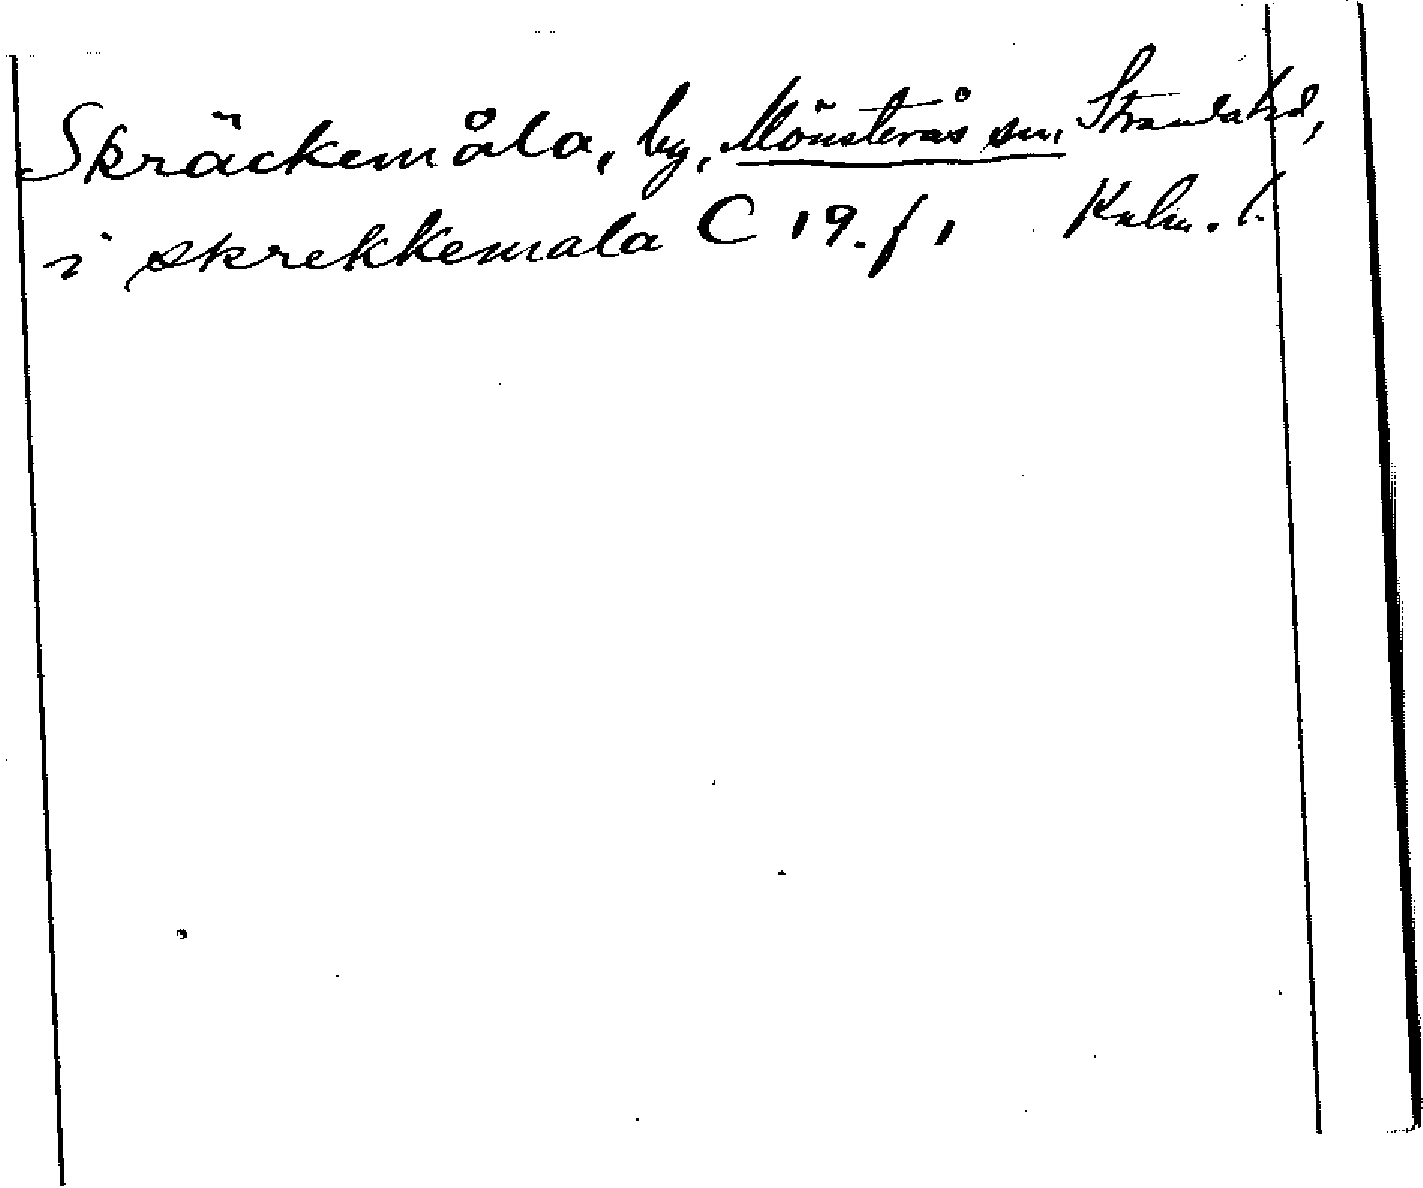 Skräckemåla, by, Mönsterås sn. Stranda hd,
i skrekkemala C 19. f 1 Kalm. l.